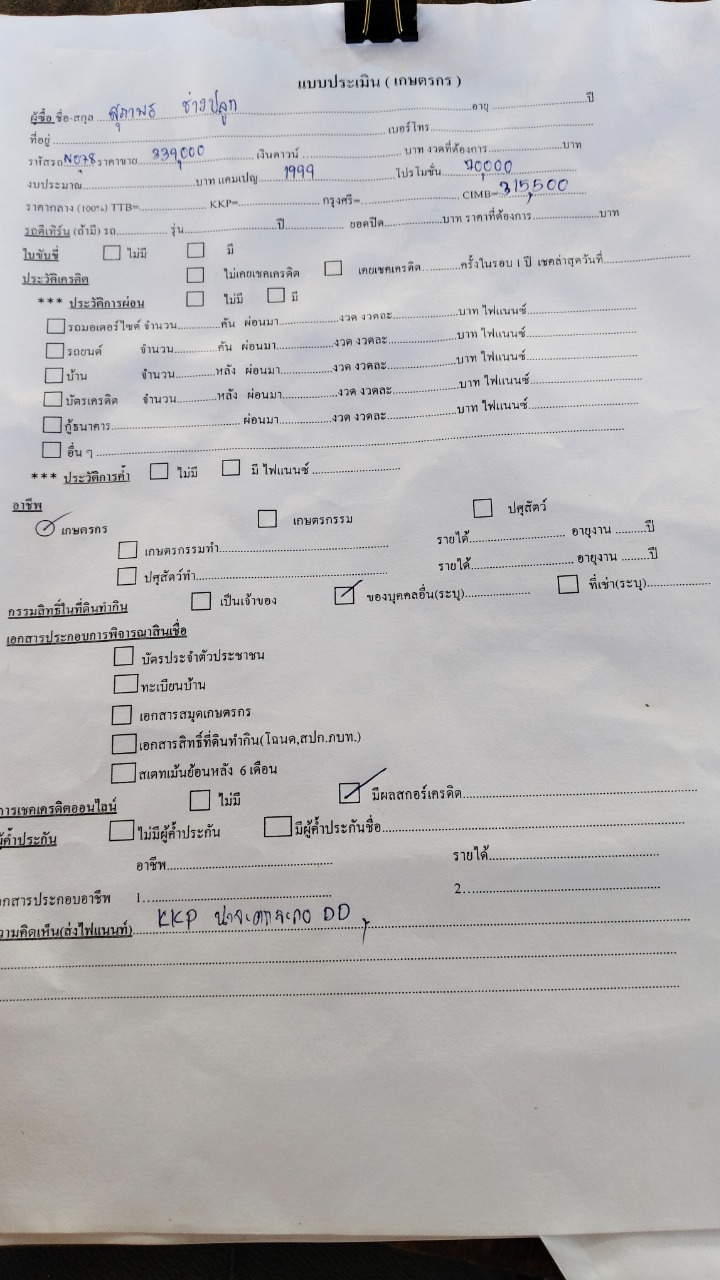 แบบประเมิน ( เกษตรกร )
ผู้ซื้อ ชื่อ-สกุล สุภาพร ช่างปลูก อายุ ปี
ที่อยู่ เบอร์โทร
รหัสรถ N078 ราคาขาย 339,000 เงินดาวน์ บาท งวดที่ต้องการ บาท
งบประมาณ บาท แคมเปญ 1999 โปรโมชั่น 70,000
ราคากลาง (100%) TTB= KKP= กรุงศรี= CIMB= 315,500
รถตีเทิร์น (ถ้ามี) รถ รุ่น ปี ยอดปิด บาท ราคาที่ต้องการ บาท
ใบขับขี่ ไม่มี มี
ประวัติเครดิต ไม่เคยเชคเครดิต เคยเชคเครดิต ครั้งในรอบ 1 ปี เชคล่าสุดวันที่
*** ประวัติการผ่อน ไม่มี มี
รถมอเตอร์ไซค์ จำนวน คัน ผ่อนมา งวด งวดละ บาท ไฟแนนซ์
รถยนต์ จำนวน คัน ผ่อนมา งวด งวดละ บาท ไฟแนนซ์
บ้าน จำนวน หลัง ผ่อนมา งวด งวดละ บาท ไฟแนนซ์
บัตรเครดิต จำนวน หลัง ผ่อนมา งวด งวดละ บาท ไฟแนนซ์
กู้ธนาคาร ผ่อนมา งวด งวดละ บาท ไฟแนนซ์
อื่น ๆ
*** ประวัติการค้ำ ไม่มี มี ไฟแนนซ์
อาชีพ
เกษตรกร เกษตรกรรม ปศุสัตว์
เกษตรกรรมทำ รายได้ อายุงาน ปี
ปศุสัตว์ทำ รายได้ อายุงาน ปี
กรรมสิทธิ์ในที่ดินทำกิน เป็นเจ้าของ ของบุคคลอื่น(ระบุ) ที่เช่า(ระบุ)
เอกสารประกอบการพิจารณาสินเชื่อ
บัตรประจำตัวประชาชน
ทะเบียนบ้าน
เอกสารสมุดเกษตรกร
เอกสารสิทธิ์ที่ดินทำกิน(โฉนด,สปก.ภบท.)
สเตทเม้นย้อนหลัง 6 เดือน
การเชคเครดิตออนไลน์ ไม่มี มีผลสกอร์เครดิต
ผู้ค้ำประกัน ไม่มีผู้ค้ำประกัน มีผู้ค้ำประกันชื่อ
อาชีพ รายได้
เอกสารประกอบอาชีพ 1 2
ความคิดเห็น(ส่งไฟแนนท์) KKP DD